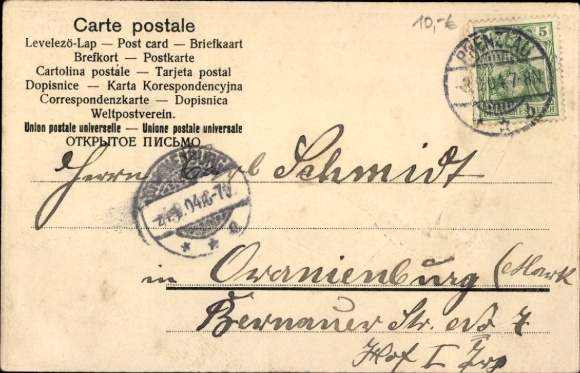 Carte postale
Levelező-Lap — Post card — Briefkaart
Brefkort — Postkarte
Cartolina postale — Tarjeta postal
Dopisnice — Karta Korespondencyjna
Correspondenzkarte — Dopisnica
Weltpostverein.
Union postale universelle — Unione postale universale
ОТКРЫТОЕ ПИСЬМО
10,-€
5
PRENZLAU
04.7-8N
b
Herrn Carl Schmidt
04.6-7V
in Oranienburg (Mark
Bernauer Str. No 7
Hof I